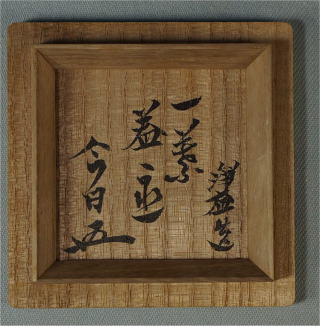 浄益造
一葉
蓋置
今日